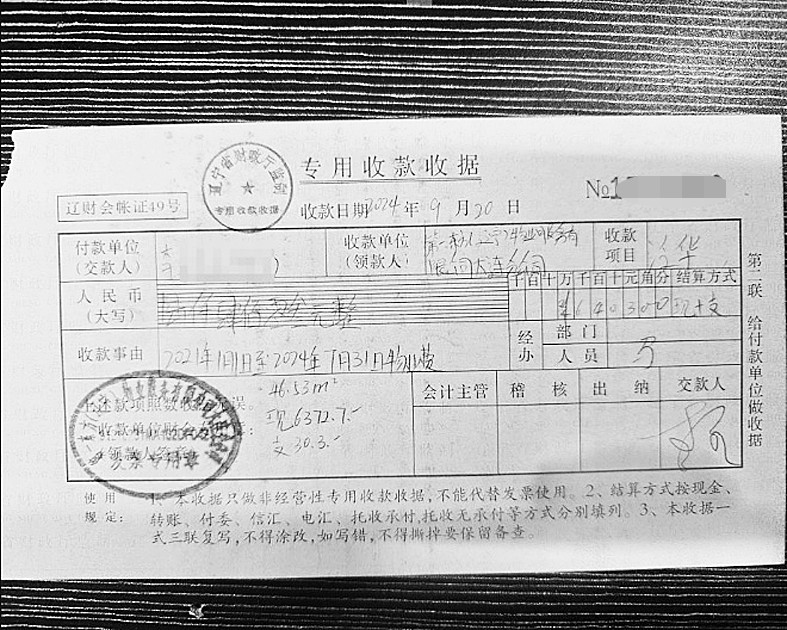 专用收款收据
辽宁省财政厅监制
专用收款收据
辽财会帐证49号
收款日期 2024年 9月20日
№1
付款单位
(交款人)
收款单位
(领款人)
限公司大连分公司
收款
项目
人民币
(大写)
元整
千百十万千百十元角分 结算方式
¥640300 现+支
收款事由
2021年1月1日至2024年7月31日物业费
经办
部门
人员
46.53m²
上述款项照数收讫无误。
现6372.7.-
收款单位财会专用章:
支30.3.-
(领款人签章)
发票专用章
会计主管 稽核 出纳 交款人
第二联 给付款单位做收据
使用
规定:
1、本收据只做非经营性专用收款收据,不能代替发票使用。2、结算方式按现金、
转账、付委、信汇、电汇、托收承付,托收无承付等方式分别填列。3、本收据一
式三联复写,不得涂改,如写错,不得撕掉要保留备查。